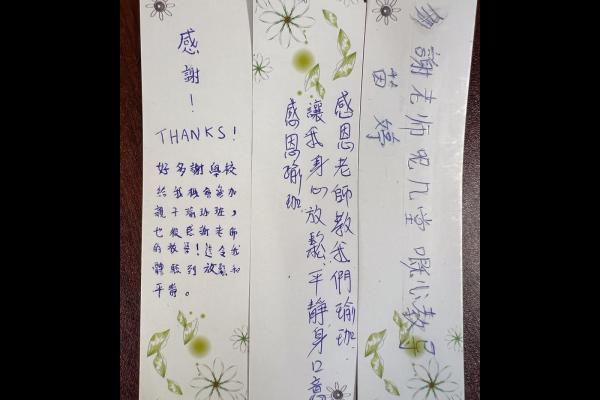 感
謝
!
THANKS!
好多謝學校
給我機會參加
親子瑜珈班,
也很感謝老師
的教導!這令我
體驗到放鬆和
平靜。
感恩老師教我們瑜珈
讓我身心放鬆.平靜身口意
感恩瑜珈
多謝老師呢几堂嘅心教导
苗婷